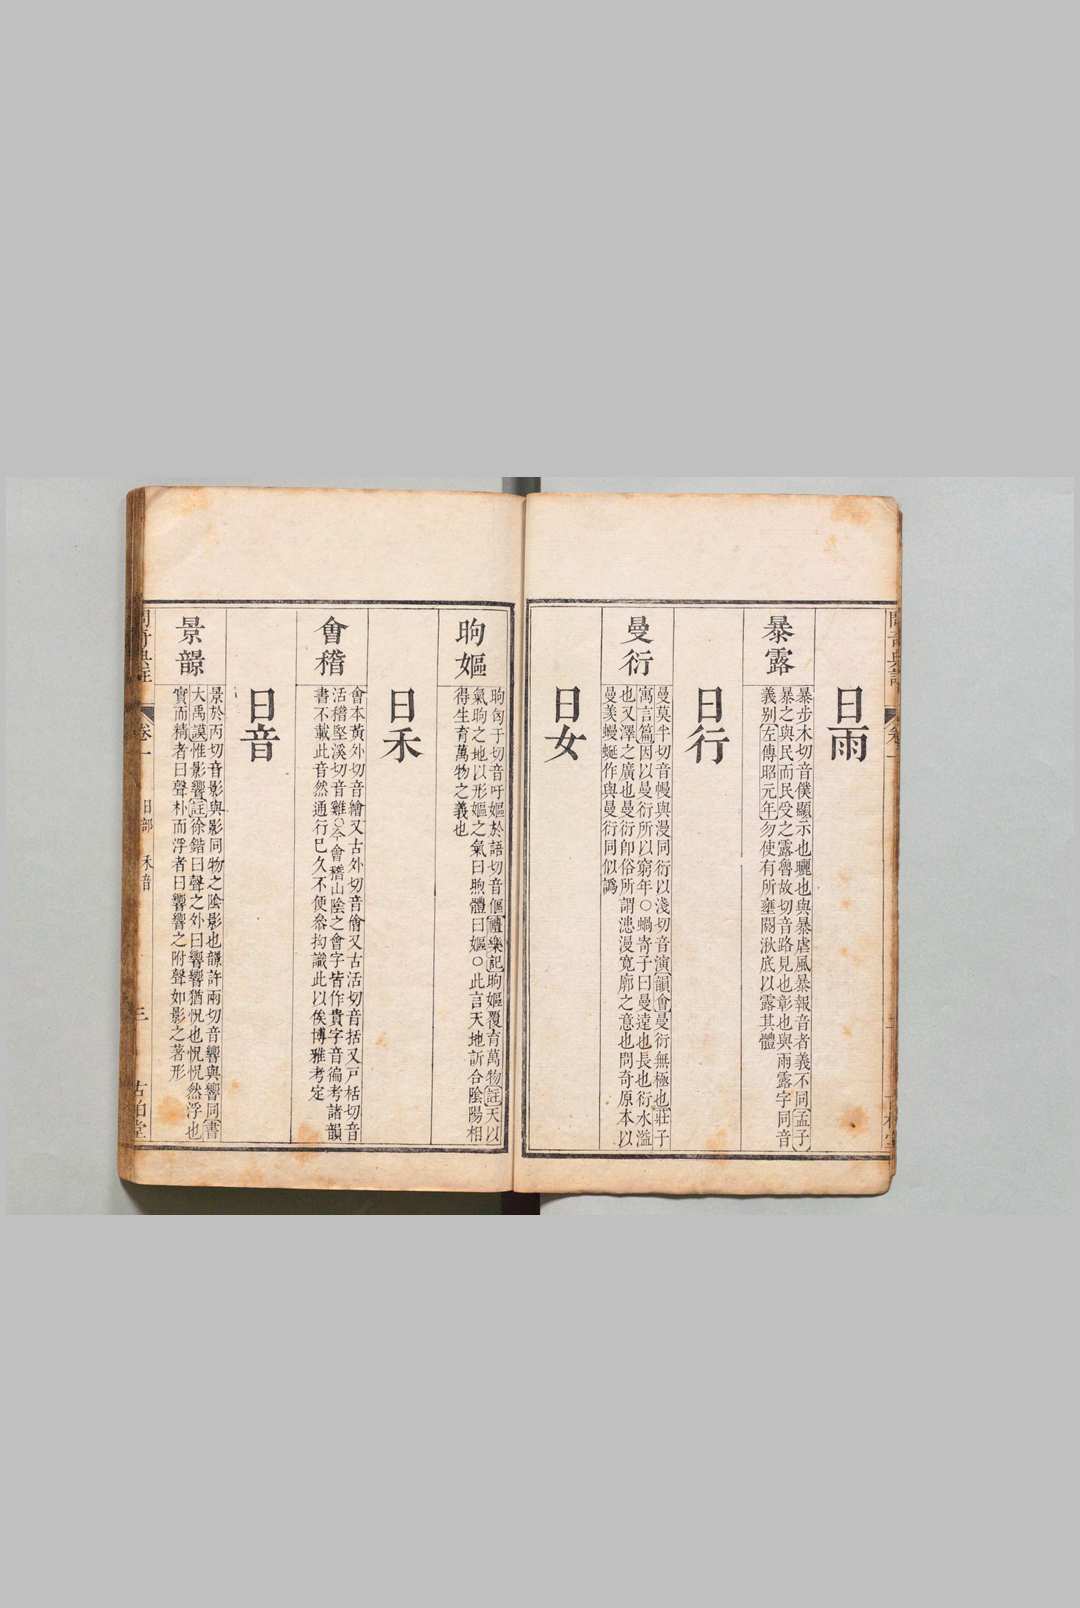 日雨
暴露
暴步木切音僕顯示也曬也與暴虐風暴報音者義不同孟子
暴之與民而民受之露魯故切音路見也彰也與雨露字同音
義别左傳昭元年勿使有所壅閼湫底以露其體
日行
曼衍
曼莫半切音幔與漫同衍以淺切音演韻會曼衍無極也莊子
寓言篇因以曼衍所以窮年○蝸寄子曰曼遠也長也衍水溢
也又澤之廣也曼衍卽俗所謂漶漫寬廓之意也問奇原本以
曼羨蟃蜒作與曼衍同似譌
日女
昫嫗
昫匈于切音吁嫗於語切音傴禮樂記昫嫗覆育萬物註天以
氣昫之地以形嫗之氣曰煦體曰嫗○此言天地訢合陰陽相
得生育萬物之義也
日禾
會稽
會本黃外切音繪又古外切音儈又古活切音括又戸栝切音
活稽堅溪切音雞○今會稽山陰之會字皆作貴字音徧考諸韻
書不載此音然通行已久不便叅拘識此以俟博雅考定
日音
景韹
景於丙切音影與影同物之陰影也韹許兩切音響與響同書
大禹謨惟影響註徐鍇曰聲之外曰響響猶怳也怳怳然浮也
實而精者曰聲朴而浮者曰響響之附聲如影之著形
卷一
日部
禾音
三
古柏堂